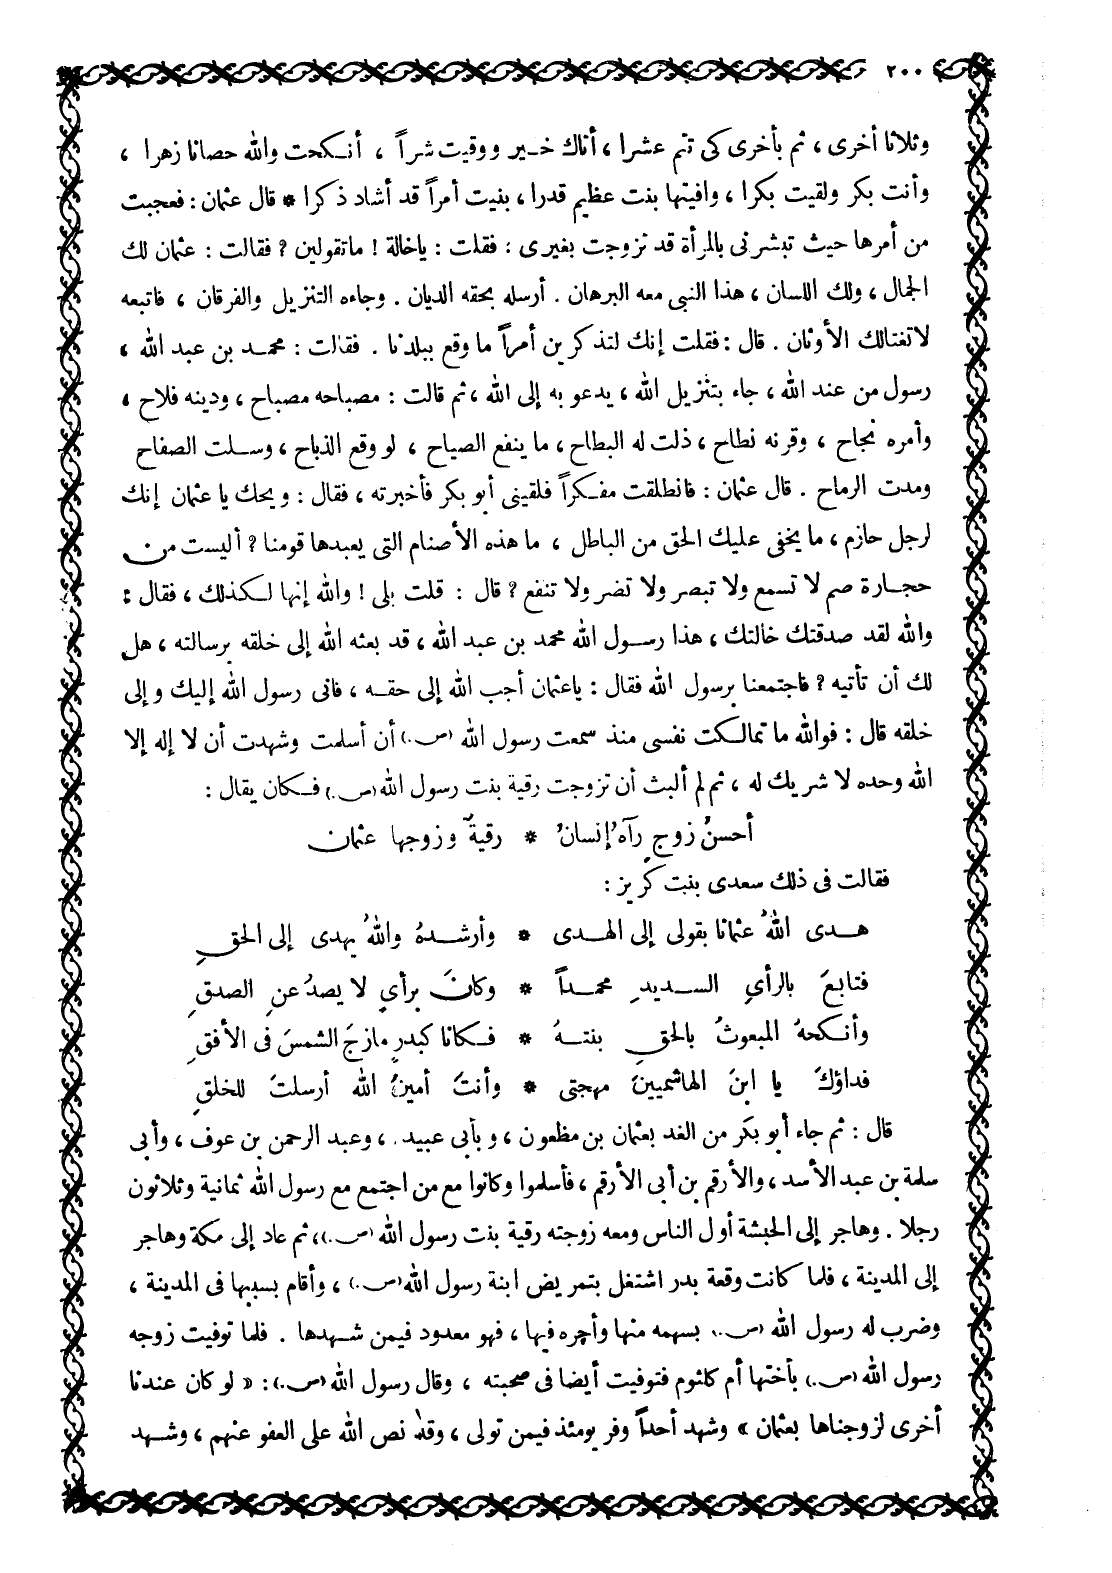 ٢٠٠
وثلاثا أخرى ، ثم بأخرى كى تتم عشرا ، أتاك خـير ووقيت شراً ، أنـكحت والله حصانا زهرا ،
وأنت بكر ولقيت بكرا ، وافيتها بنت عظيم قدرا ، بنيت أمراً قد أشاد ذكرا * قال عثمان : فعجبت
من أمرها حيث تبشرنى بالمرأة قد تزوجت بغيرى : فقلت : ياخالة ! ماتقولين ? فقالت : عثمان لك
الجمال ، ولك اللسان ، هذا النبى معه البرهان . أرسله بحقه الديان . وجاءه التنزيل والفرقان ، فاتبعه
لاتغتالك الأوثان . قال : فقلت إنك لتذكرين أمراً ما وقع ببلدنا . فقالت : محمـد بن عبد الله ،
رسول من عند الله ، جاء بتنزيل الله ، يدعو به إلى الله ، ثم قالت : مصباحه مصباح ، ودينه فلاح ،
وأمره نجاح ، وقرنه نطاح ، ذلت له البطاح ، ما ينفع الصياح ، لو وقع الذباح ، وسـلت الصفاح
ومدت الرماح . قال عثمان : فانطلقت مفـكراً فلقينى أبو بكر فأخبرته ، فقال : ويحك يا عثمان إنك
لرجل حازم ، ما يخفى عليك الحق من الباطل ، ما هذه الأصنام التى يعبدها قومنا ? أليست من
حجـارة صم لا تسمع ولا تبصر ولا تضر ولا تنفع ? قال : قلت بلى ! والله إنها لـكذلك ، فقال :
والله لقد صدقتك خالتك ، هذا رسـول الله محمد بن عبد الله ، قد بعثه الله إلى خلقه برسالته ، هل
لك أن تأتيه ? فاجتمعنا برسول الله فقال : ياعثمان أجب الله إلى حقـه ، فانى رسول الله إليك وإلى
خلقه قال : فوالله ما تمالـكت نفسى منذ سمعت رسول الله (ص.) أن أسلمت وشهدت أن لا إله إلا
الله وحده لا شريك له ، ثم لم ألبث أن تزوجت رقية بنت رسول الله (ص.) فـكان يقال :
أحسنُ زوجٍ رآه إنسانُ * رقيةٌ وزوجها عثمان
فقالت فى ذلك سعدى بنت كريز :
هـدى اللهُ عثمانا بقولى إلى الهـدى * وأرشـدهُ واللهُ يهدى إلى الحقِ
فتابعَ بالرأىِ السـديدِ محمـداً * وكانَ برأىٍ لا يصدُ عنِ الصدقِ
وأنـكحهُ المبعوثُ بالحقِ بنتـهُ * فـكانا كبدرٍ مازجَ الشمسَ فى الأفقِ
فداؤكَ يا ابنَ الهاشميينَ مهجتى * وأنتَ أمينُ الله أرسلتَ للخلقِ
قال : ثم جاء أبو بكر من الغد بعثمان بن مظعون ، وبأبى عبيد . ، وعبد الرحمن بن عوف ، وأبى
سلمة بن عبد الأسد ، والأرقم بن أبى الأرقم ، فأسلموا وكانوا مع من اجتمع مع رسول الله ثمانية وثلاثون
رجلا . وهاجر إلى الحبشة أول الناس ومعه زوجته رقية بنت رسول الله (ص.) ، ثم عاد إلى مكة وهاجر
إلى المدينة ، فلما كانت وقعة بدر اشتغل بتمريض ابنة رسول الله (ص.) ، وأقام بسببها فى المدينة ،
وضرب له رسول الله (ص.) بسهمه منها وأجره فيها ، فهو معدود فيمن شـهدها . فلما توفيت زوجه
رسول الله (ص.) بأختها أم كلثوم فتوفيت أيضا فى صحبته ، وقال رسول الله (ص.) : « لو كان عندنا
أخرى لزوجناها بعثمان » وشهد أحداً وفر يومئذ فيمن تولى ، وقد نص الله على العفو عنهم ، وشـهد